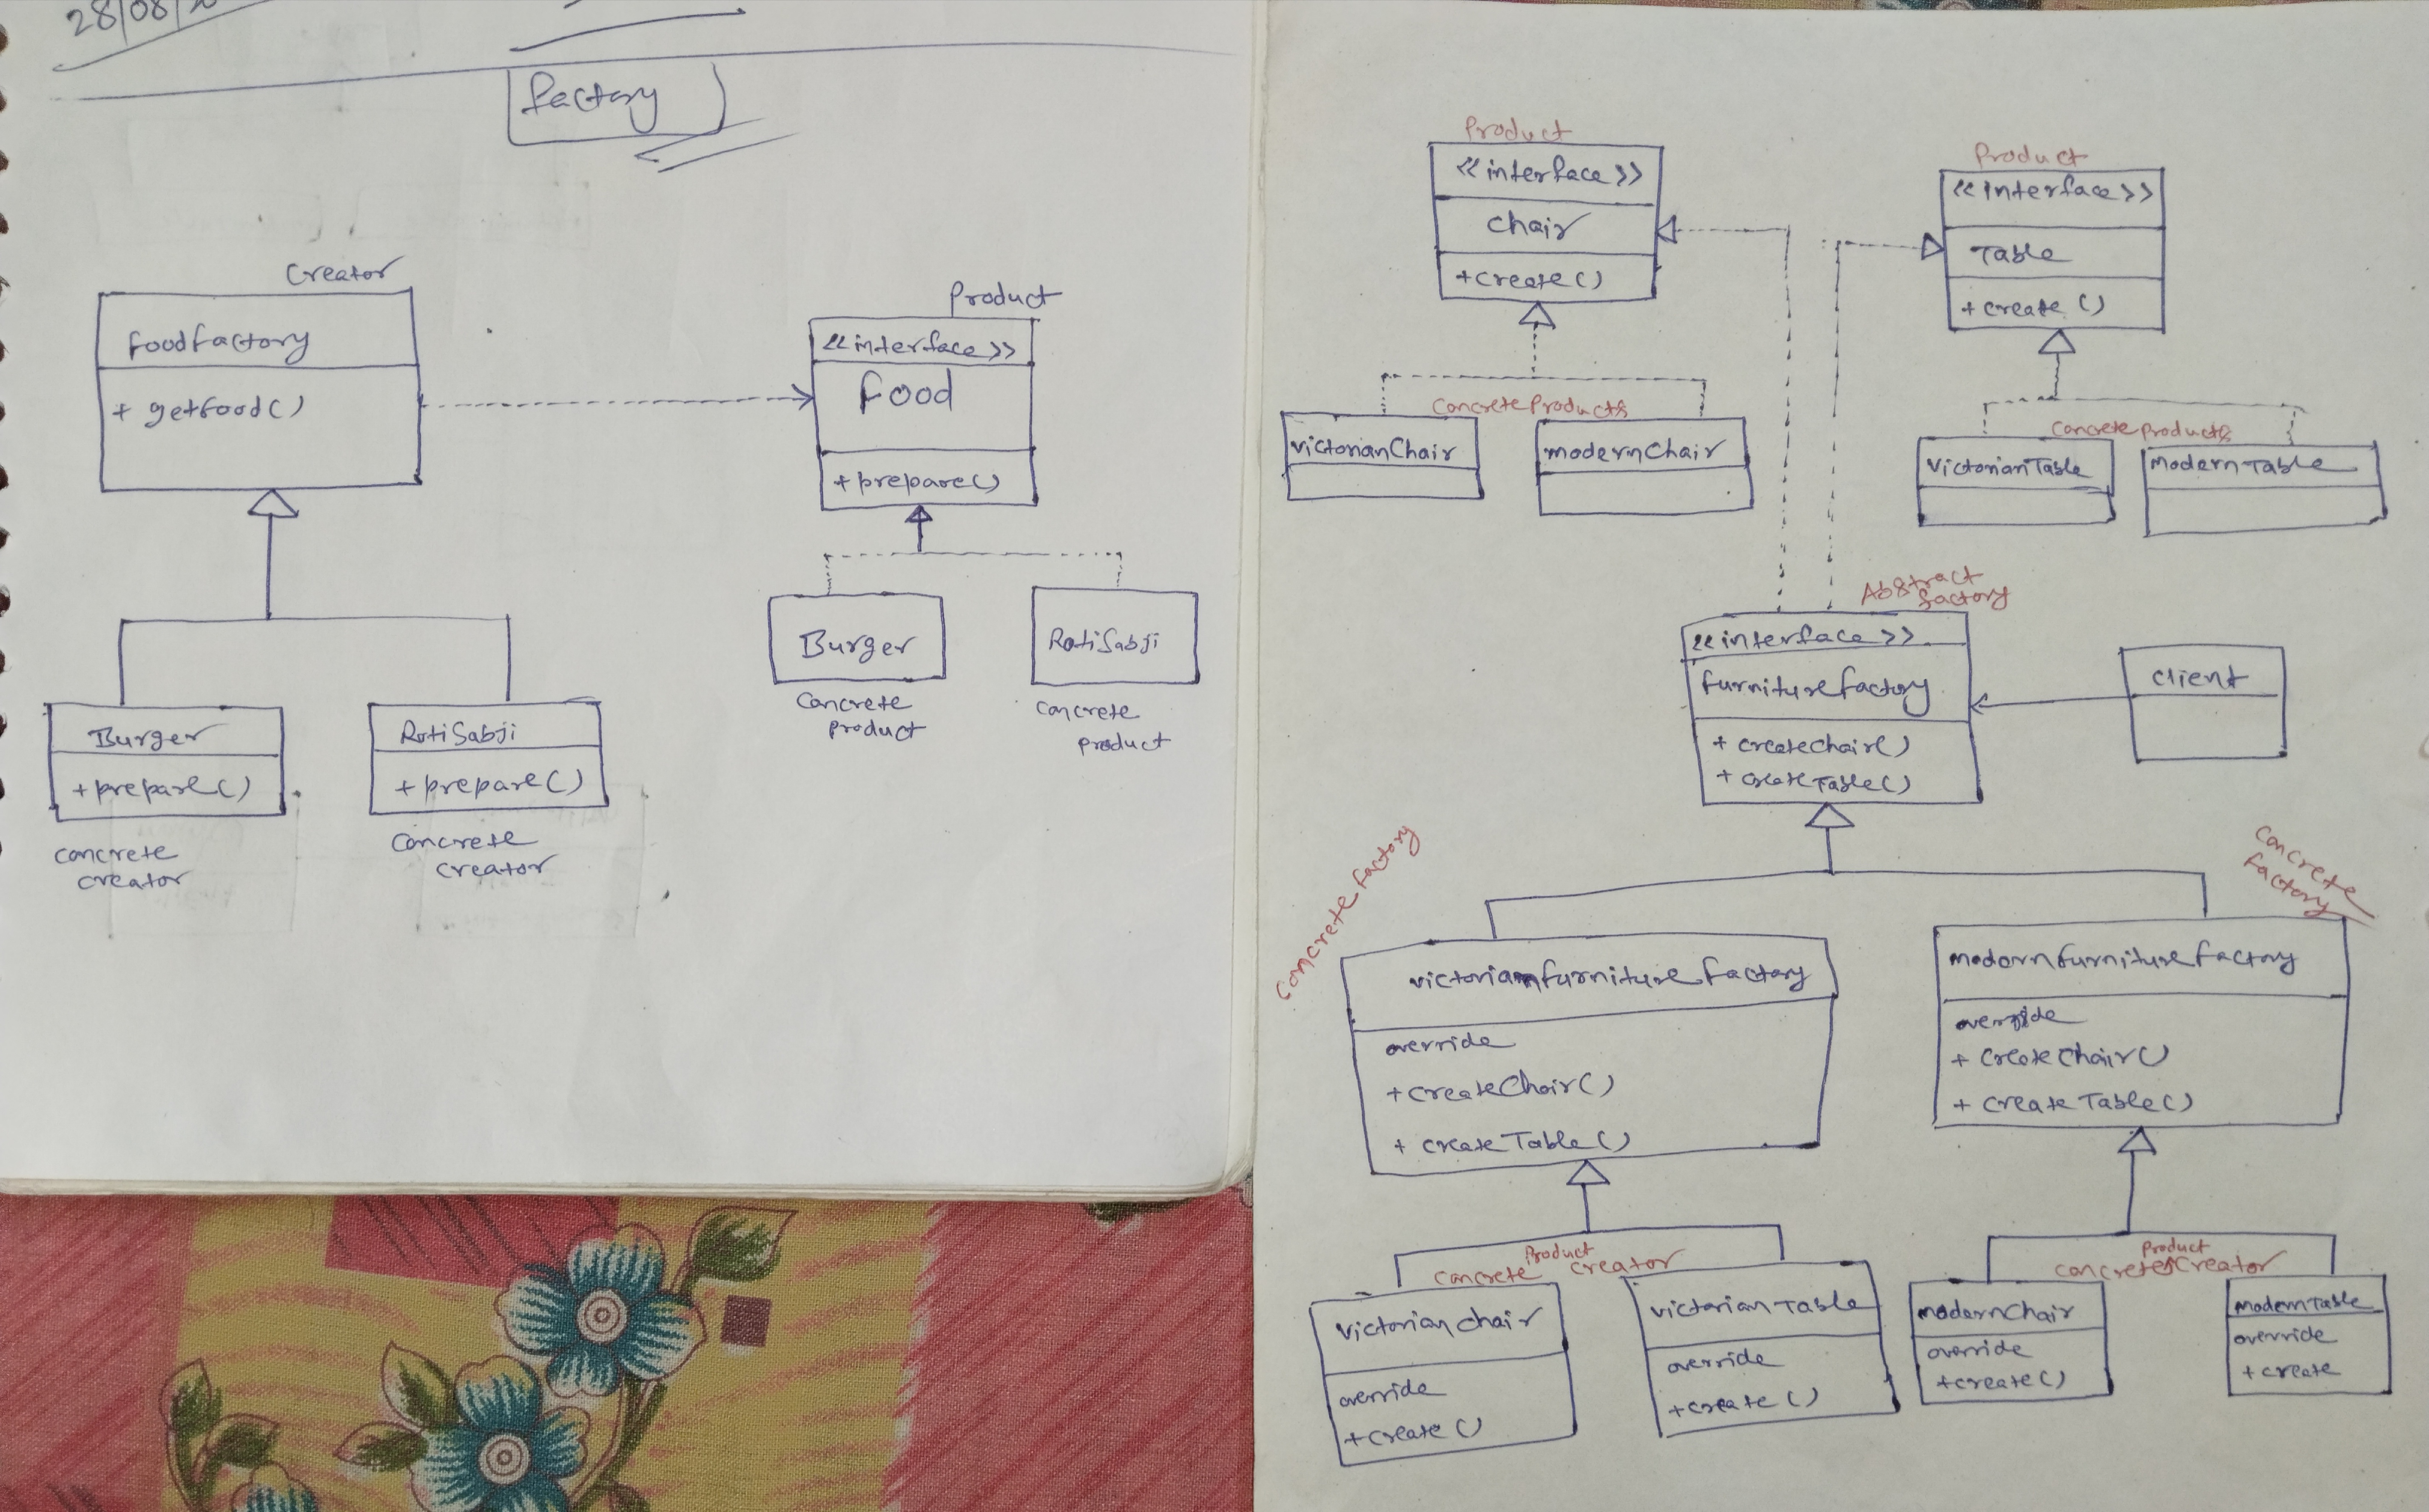 28/08/
factory
Creator
foodfactory
+ getfood()
Product
<<interface>>
food
+prepare()
Burger
RotiSabji
Concrete
product
Concrete
product
Burger
+prepare()
RotiSabji
+prepare()
Concrete
creator
Concrete
creator
Product
<<interface>>
chair
+create()
Product
<<interface>>
Table
+create()
Concrete Products
victorianChair
modernChair
Concrete Products
victorianTable
modernTable
Abstract
factory
<<interface>>
furniturefactory
+ createchair()
+ createTable()
client
Concrete factory
Concrete
factory
victorianfurniturefactory
override
+createChair()
+ createTable()
modernfurniturefactory
override
+ createchair()
+ createTable()
Product
Concrete creator
victorianchair
override
+create()
victorianTable
override
+create()
Product
concrete creator
modernchair
override
+create()
modernTable
override
+create